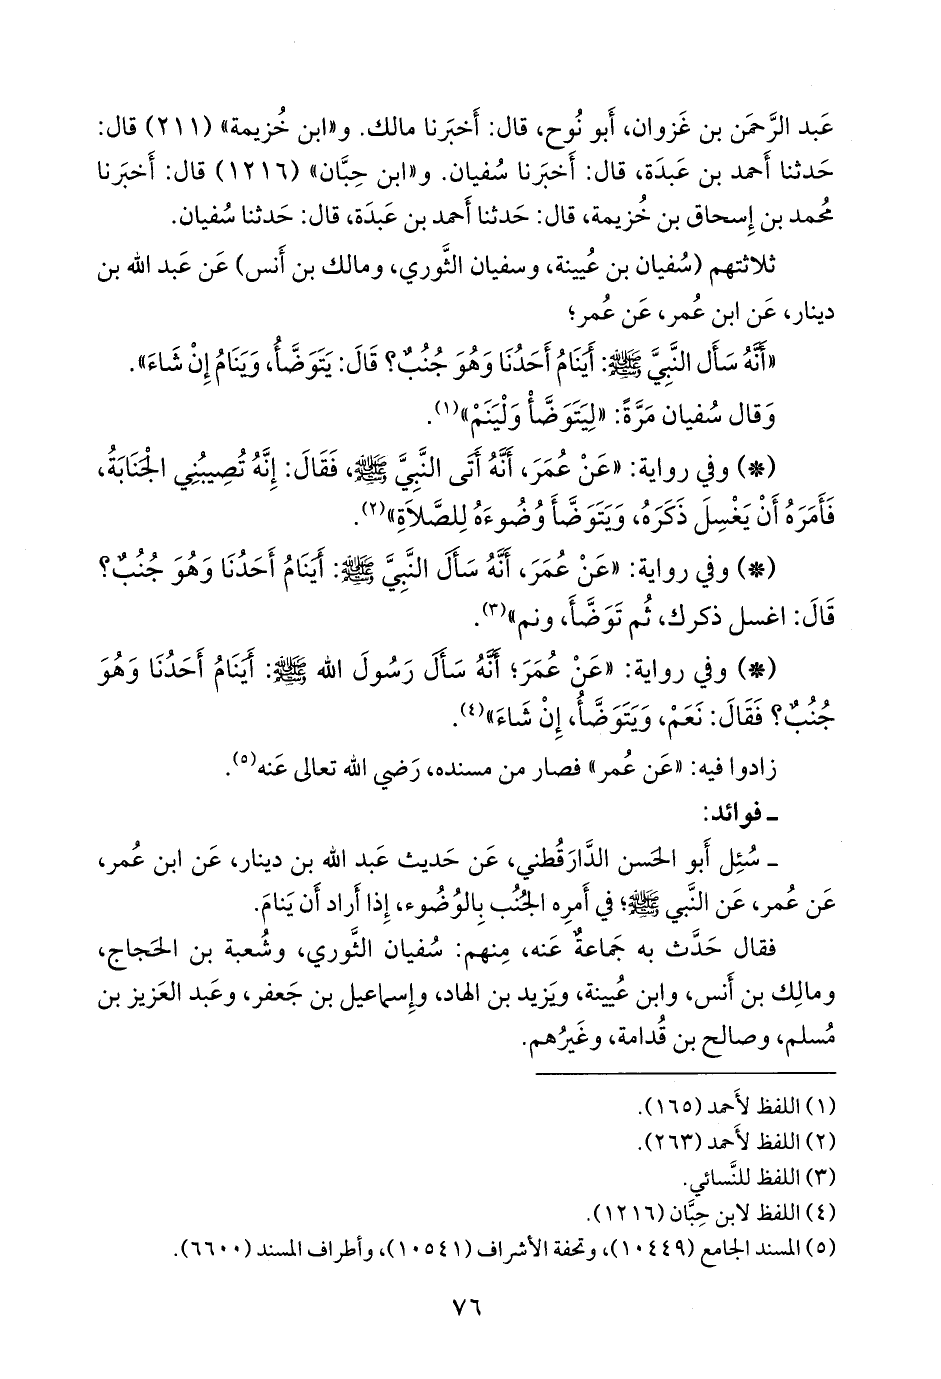 عَبد الرَّحمَن بن غَزوان، أَبو نُوح، قال: أَخبَرنا مالك. و«ابن خُزيمة» (٢١١) قال:
حَدثنا أَحمد بن عَبدَة، قال: أَخبَرنا سُفيان. و«ابن حِبَّان» (١٢١٦) قال: أَخبَرنا
مُحمد بن إِسحاق بن خُزيمة، قال: حَدثنا أَحمد بن عَبدَة، قال: حَدثنا سُفيان.
ثلاثتهم (سُفيان بن عُيينة، وسفيان الثَّوري، ومالك بن أَنس) عَن عبد الله بن
دينار، عَن ابن عُمر، عَن عُمر؛
«أَنَّهُ سَأَل النبِيَّ ﷺ: أَيَنَامُ أَحَدُنَا وَهُوَ جُنُبٌ؟ قَالَ: يَتَوَضَّأُ، وَيَنَامُ إِنْ شَاءَ».
وَقال سُفيان مَرَّةً: «لِيَتَوَضَّأْ وَلْيَنَمْ»(١).
(*) وفي رواية: «عَنْ عُمَرَ، أَنَّهُ أَتَى النَّبِيَّ ﷺ، فَقَالَ: إِنَّهُ تُصِيبُنِي الْجَنَابَةُ،
فَأَمَرَهُ أَنْ يَغْسِلَ ذَكَرَهُ، وَيَتَوَضَّأَ وُضُوءَهُ لِلصَّلاَةِ»(٢).
(*) وفي رواية: «عَنْ عُمَرَ، أَنَّهُ سَأَلَ النَّبِيَّ ﷺ: أَيَنَامُ أَحَدُنَا وَهُوَ جُنُبٌ؟
قَالَ: اغسل ذكرك، ثُم تَوَضَّأَ، ونم»(٣).
(*) وفي رواية: «عَنْ عُمَرَ؛ أَنَّهُ سَأَلَ رَسُولَ الله ﷺ: أَيَنَامُ أَحَدُنَا وَهُوَ
جُنُبٌ؟ فَقَالَ: نَعَمْ، وَيَتَوَضَّأُ، إِنْ شَاءَ»(٤).
زادوا فيه: «عَن عُمر» فصار من مسنده، رَضي الله تعالى عَنه(٥).
ـ فوائد:
ـ سُئِل أَبو الحَسن الدَّارَقُطني، عَن حَديث عَبد الله بن دينار، عَن ابن عُمر،
عَن عُمر، عَن النَّبي ﷺ؛ في أَمرِه الجُنُب بِالوُضُوء، إِذا أَراد أَن يَنامَ.
فقال حَدَّث به جَماعةٌ عَنه، مِنهم: سُفيان الثَّوري، وشُعبة بن الحَجاج،
ومالِك بن أَنس، وابن عُيينة، ويَزيد بن الهاد، وإِسماعيل بن جَعفر، وعَبد العَزيز بن
مُسلم، وصالح بن قُدامة، وغَيرُهم.
(١) اللفظ لأَحمد (١٦٥).
(٢) اللفظ لأَحمد (٢٦٣).
(٣) اللفظ للنَّسائي.
(٤) اللفظ لابن حِبَّان (١٢١٦).
(٥) المسند الجامع (١٠٤٤٩)، وتحفة الأشراف (١٠٥٤١)، وأطراف المسند (٦٦٠٠).
٧٦